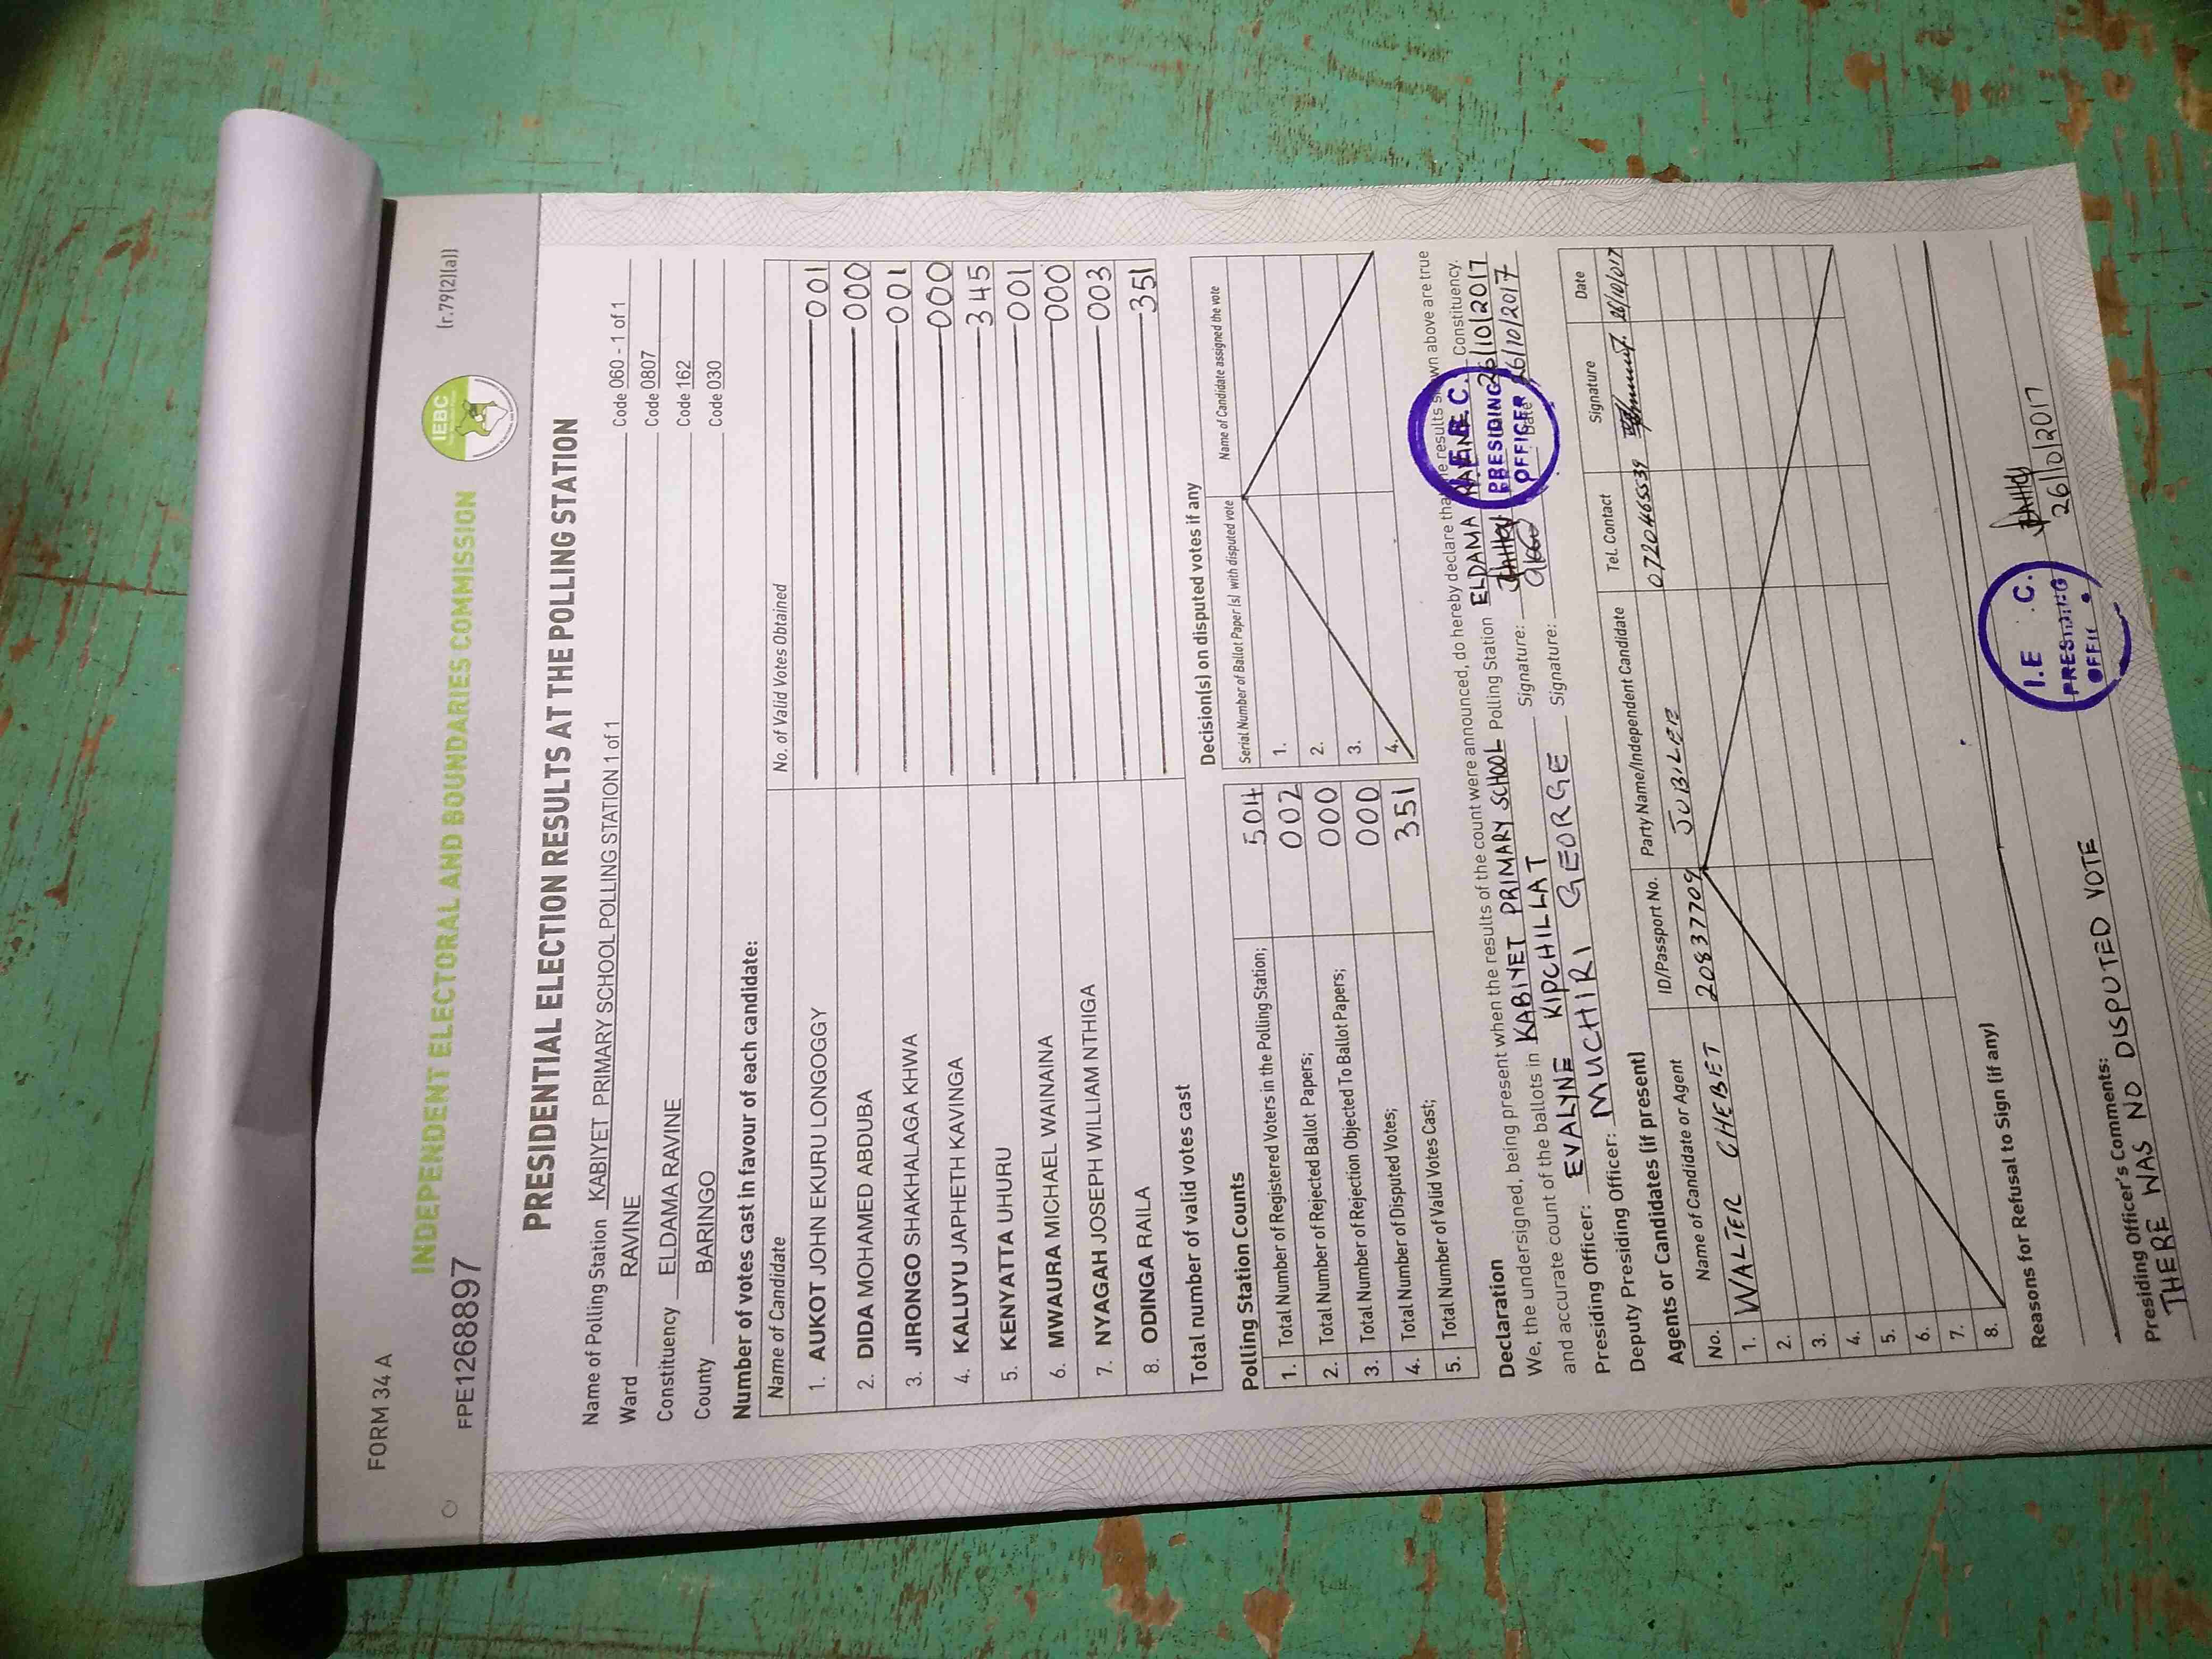 FORM 34 A
(r.79(2)(a))
IEBC
INDEPENDENT ELECTORAL AND BOUNDARIES COMMISSION
FPE1268897
PRESIDENTIAL ELECTION RESULTS AT THE POLLING STATION
Name of Polling Station KABIYET PRIMARY SCHOOL POLLING STATION 1 of 1 Code 060 - 1 of 1
Ward RAVINE Code 0807
Constituency ELDAMA RAVINE Code 162
County BARINGO Code 030
Number of votes cast in favour of each candidate:
Name of Candidate No. of Valid Votes Obtained
1. AUKOT JOHN EKURU LONGOGGY 001
2. DIDA MOHAMED ABDUBA 000
3. JIRONGO SHAKHALAGA KHWA 001
4. KALUYU JAPHETH KAVINGA 000
5. KENYATTA UHURU 345
6. MWAURA MICHAEL WAINAINA 001
7. NYAGAH JOSEPH WILLIAM NTHIGA 000
8. ODINGA RAILA 003
Total number of valid votes cast 351
Polling Station Counts
1. Total Number of Registered Voters in the Polling Station; 504
2. Total Number of Rejected Ballot Papers; 002
3. Total Number of Rejection Objected To Ballot Papers; 000
4. Total Number of Disputed Votes; 000
5. Total Number of Valid Votes Cast; 351
Decision(s) on disputed votes if any
Serial Number of Ballot Paper(s) with disputed vote Name of Candidate assigned the vote
1.
2.
3.
4.
Declaration
We, the undersigned, being present when the results of the count were announced, do hereby declare that the results shown above are true
and accurate count of the ballots in KABIYET PRIMARY SCHOOL Polling Station ELDAMA RAVINE Constituency.
Presiding Officer: EVALYNE KIPCHILLAT Signature: 26/10/2017
Deputy Presiding Officer: MUCHIRI GEORGE Signature: Date 26/10/2017
I.E.B.C.
PRESIDING
OFFICER
Agents or Candidates (if present)
No. Name of Candidate or Agent ID/Passport No. Party Name/Independent Candidate Tel. Contact Signature Date
1. WALTER CHEBET 20837709 JUBILEE 0720465539 26/10/017
2.
3.
4.
5.
6.
7.
8.
Reasons for Refusal to Sign (if any)
Presiding Officer's Comments:
THERE WAS NO DISPUTED VOTE
26/10/2017
I.E C.
PRESIDING